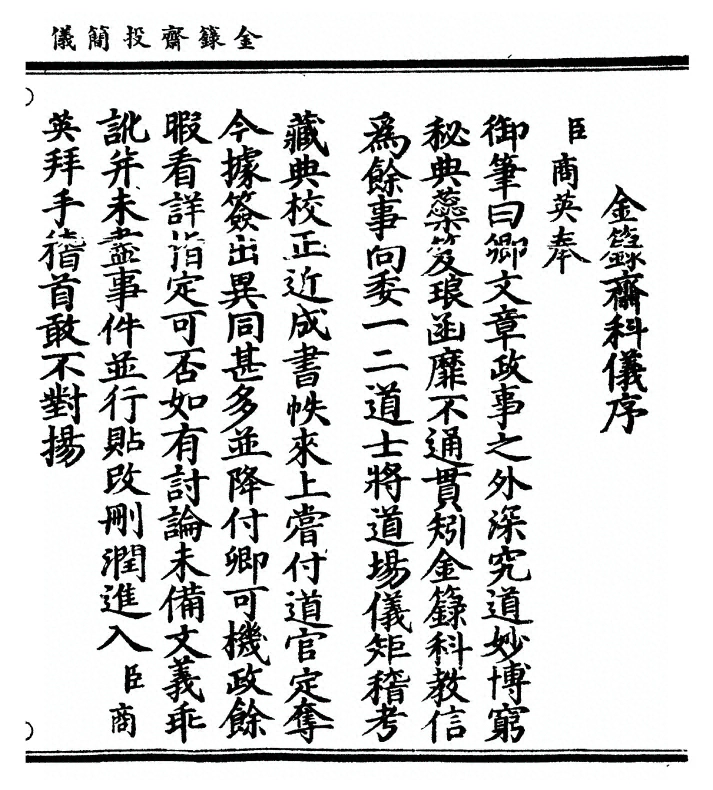 金籙齋投簡儀
金籙齋科儀序
臣商英奉
御筆曰卿文章政事之外深究道妙博窮
秘典蘂笈琅函靡不通貫矧金籙科教信
為餘事向委一二道士將道場儀矩稽考
藏典校正近成書帙來上嘗付道官定奪
今據簽出異同甚多並降付卿可機政餘
暇看詳指定可否如有討論未備文義乖
訛并未盡事件並行貼改刪潤進入臣商
英拜手稽首敢不對揚